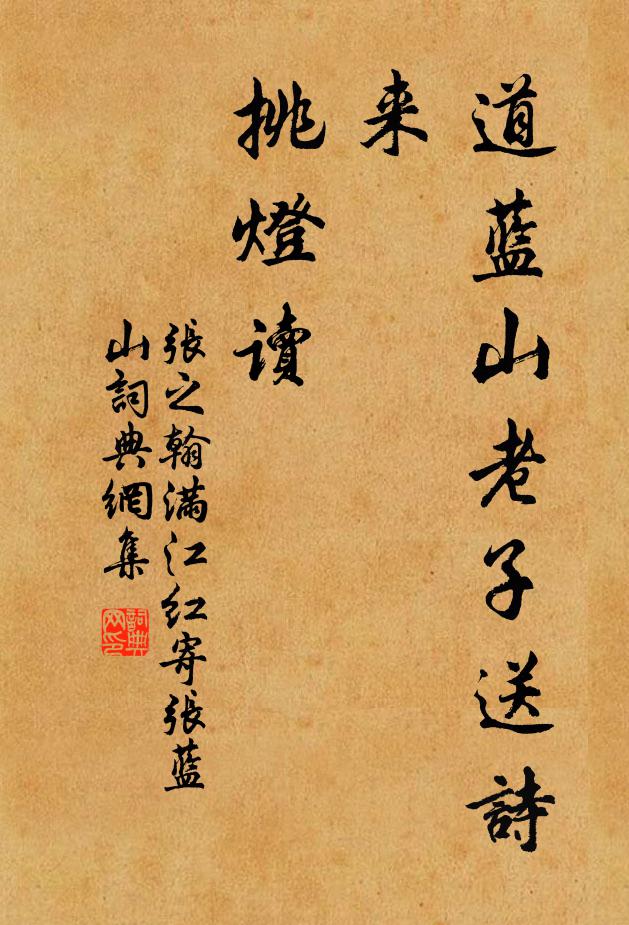 道蓝山老子送詩
来
挑燈讀
張之翰滿江红寄張蓝
山詞典網集
詞典网印